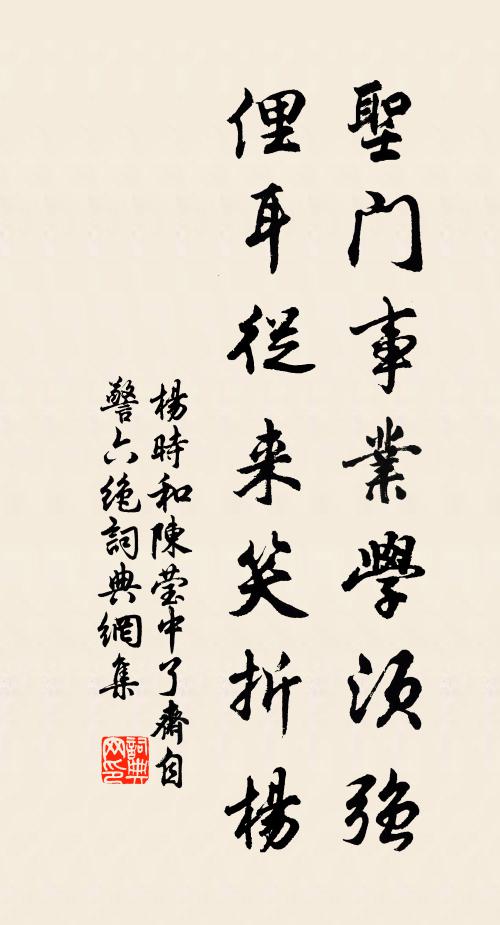 聖門事業學須强
俚耳從来笑折楊
楊時和陳瑩中了齋自
警六絶詞典網集
詞典网印